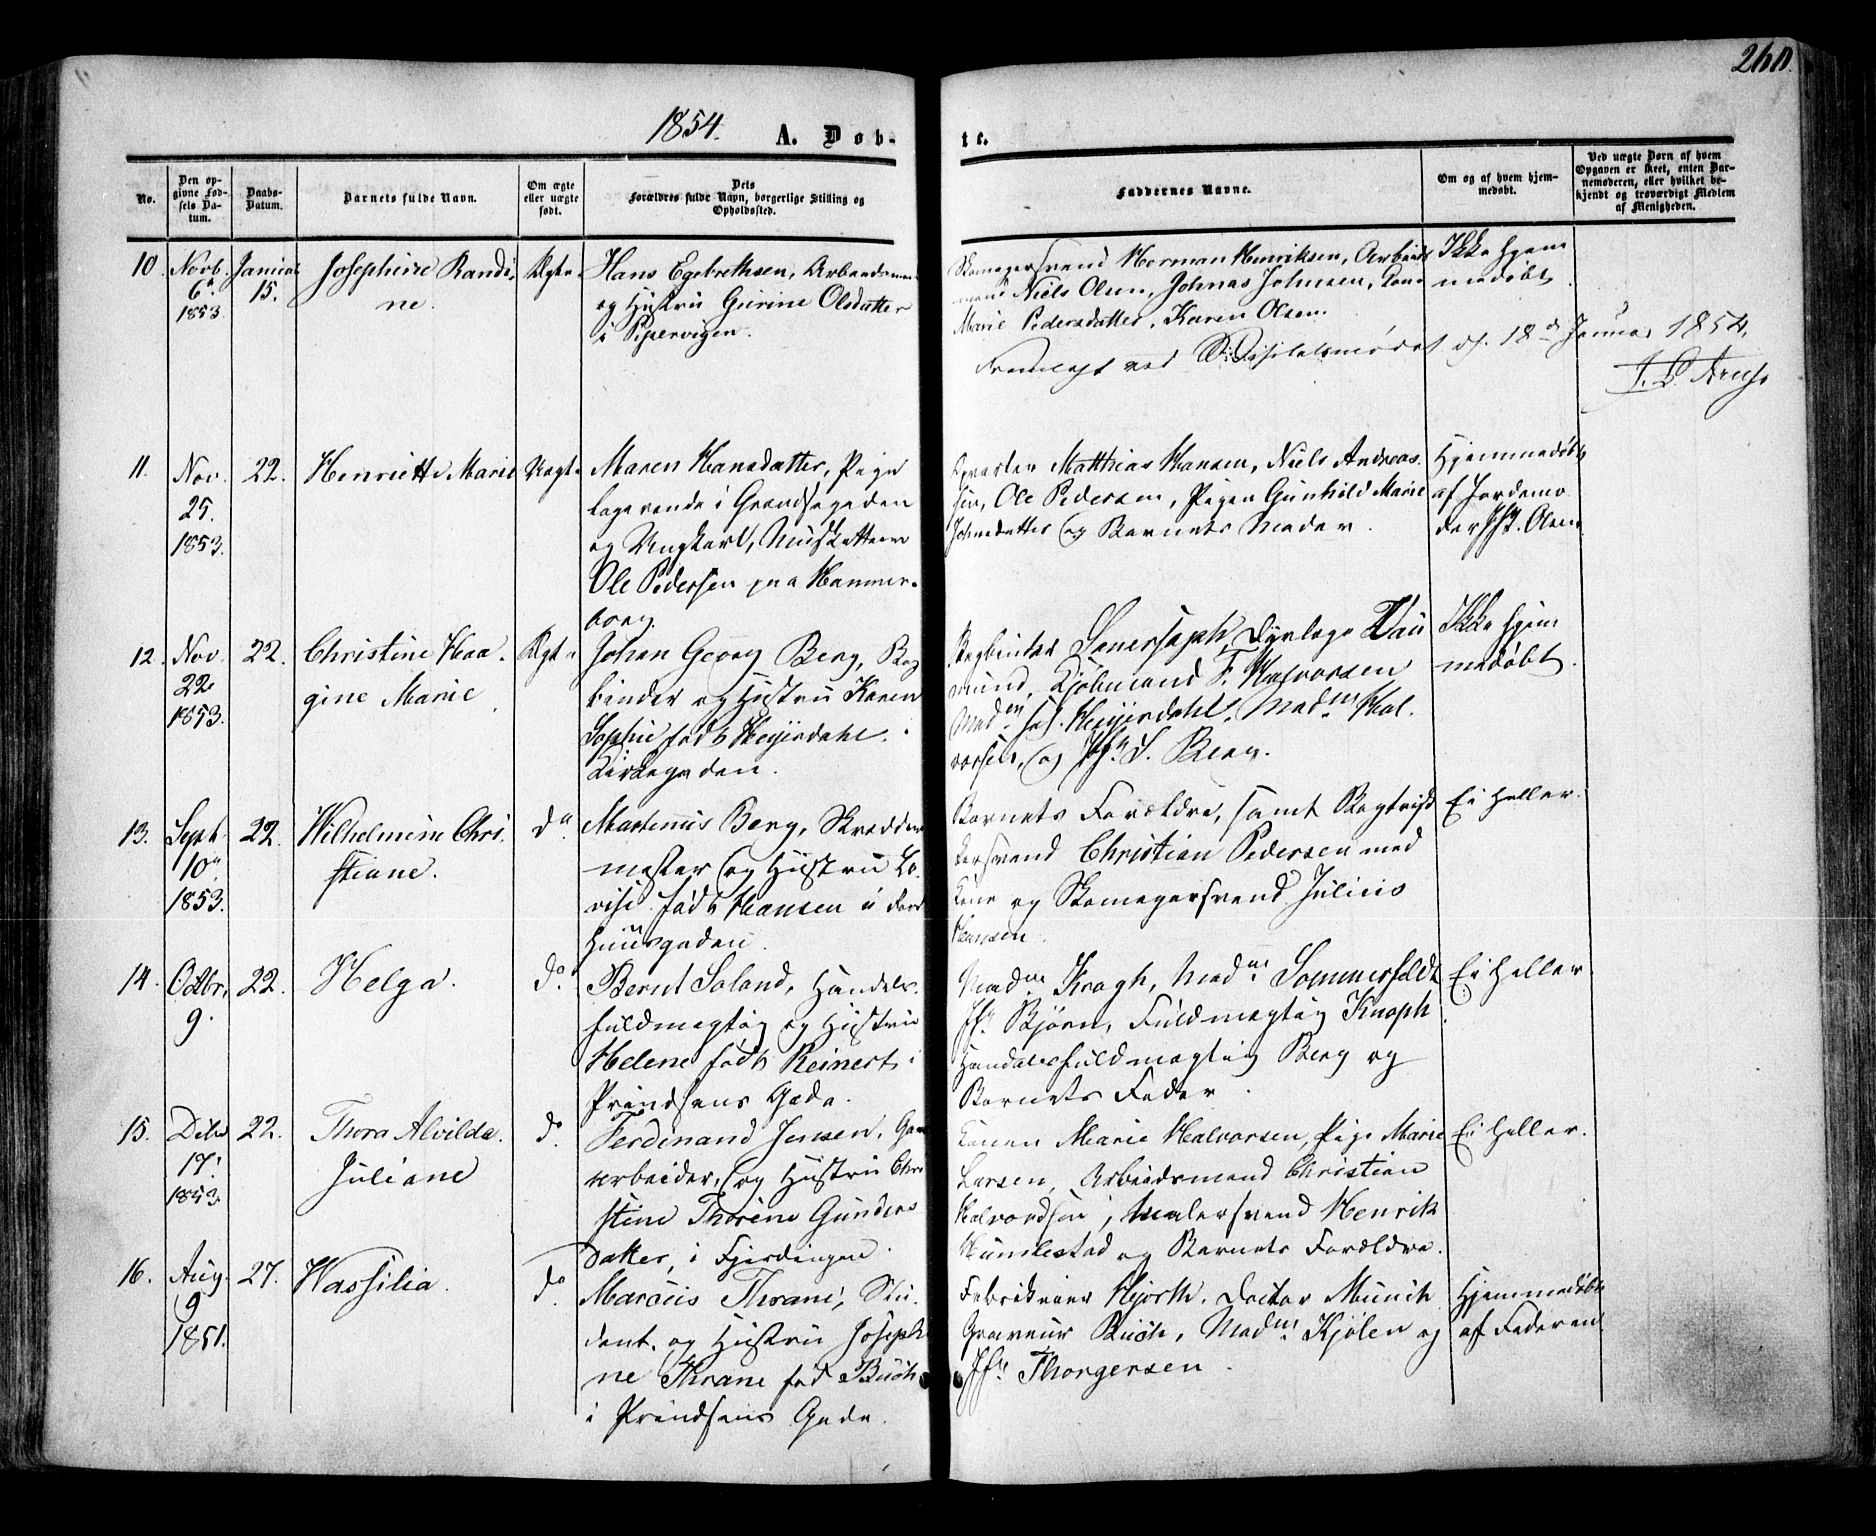 260.
1854. A. Døb- te.
No.
Den opgivne Fødsels Datum.
Daabs-Datum.
Barnets fulde Navn.
Om ægte eller uægte født.
Dets Forældres fulde Navn, borgerlige Stilling og Opholdssted.
Faddernes Navne.
Om og af hvem hjemmedøbt.
Ved uægte Børn af hvem Opgaven er skeet, enten Barnemoderen, eller hvilket bekjendt og troværdigt Medlem af Menigheden.
10. Novb. 6te 1853. Januar 15. Josephine Randine. Ægte
Hans Egebrethsen, Arbeidsmand
og Hustru Gurine Olsdatter
i Pipervigen.
Skomagersvend Herman Henriksen, Arbeids
mand Niels Olsen, Johnas Johnsen, Kone
Marie Pedersdatter, Karen Olsen.
Ikke hjem
medøbt.
Fremlagt ved Skiftesamlingen d. 18de Januar 1854.
11. Nov. 25. 1853. 22. Henriette Marie Uægte
Maren Hansdatter, Pige
logerende i Grændsegaden
og Ungkarl, Musketteer
Ole Pedersen paa Hammer-
borg.
Matthias Hansen, Niels Andreas
sen, Ole Pedersen, Pigen Gunhild Marie
Johnsdatter og Barnets Moder.
Hjemmedøbt
af Jordemo
der Jfr. Olsen
12. Nov 22 1853. 22. Christine Haagine Marie. Ægte
Johan Georg Berg, Bog
binder og Hustru Karen
Sophie født Heyerdahl.
Kirkegaden.
Bogbinder Dyrlæge Vau
mund, Kjøbmand F. Halvorsen
Mad. Heyerdahl, Madm Hal.
vorsen, og Jfr. S. Berg.
Ikke hjem
medøbt.
13. Sept. 10. 1853. 22. Wilhelmine Christiane. do
Martinus Berg, Skredder
mester og Hustru Lo
vise født Hansen i
Huusgaden.
Barnets Forældre, samt Bogtryk
kersvend Christian Pedersen med
Kone og Skomagersvend Julius
Hansen.
Ei heller.
14. Octbr. 9. 22. Helga. do.
Bernt Soland, Handels
fuldmægtig og Hustru
Helene født Reinert i
Prindsens Gade.
Madm Kragh, Madm Sommerfeldt
Jfr. Bjørn, Fuldmægtig Knoph
Handelsfuldmægtig Berg og
Barnets Fader.
Ei heller.
15. Decbr 17. 1853. 22. Thora Alvilda. Juliane do.
Ferdinand Jensen, Gar
verarbeider, og Hustru Chri
stine Thorine Gunders
datter, i Fjerdingen.
Konen Marie Halvorsen, Pige Marie
Larsen, Arbeidsmand Christian
Halvordsen, Malersvend Henrik
Humlestad og Barnets Forældre.
Ei heller.
16. Aug. 9 1851. 27. Wassilia. do.
Marcus Thrane, Stu.
dent. og Hustru Josephi
ne Thrane fød Buch
i Prindsens Gade.
Fabrikeier Hjorth. Doctor Munch
Graveur Buch, Madm Kjølen og
Jfr. Thorgersen.
Hjemmedøbt
af Faderen